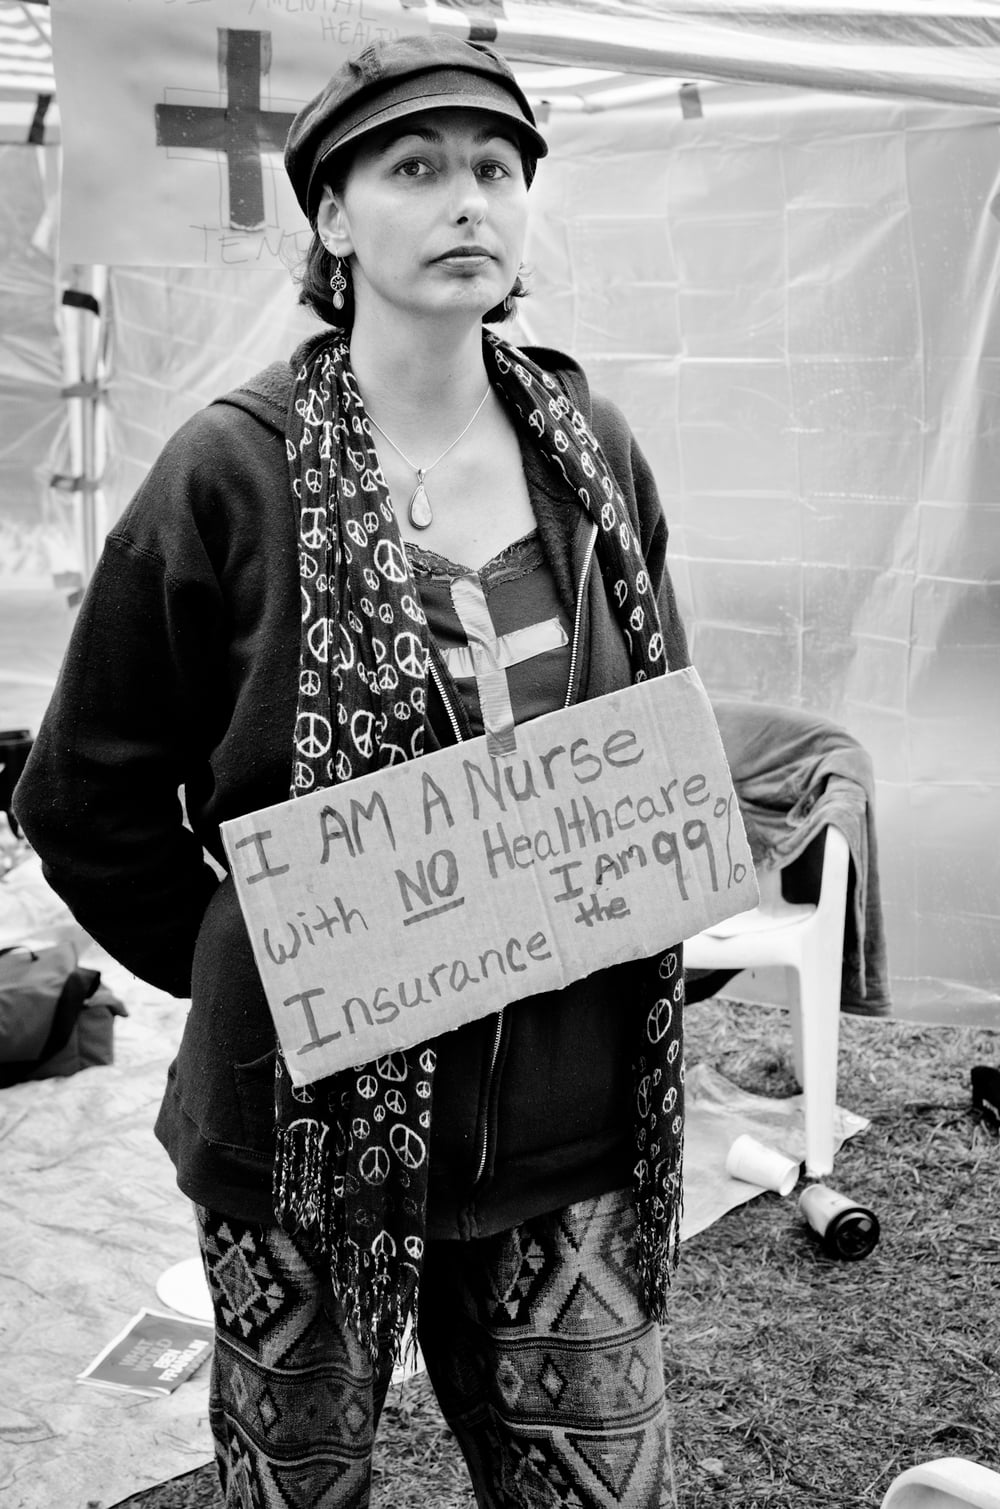 MENTAL
HEALTH
TENT
I AM A Nurse
with NO Healthcare
Insurance
I AM
the 99%